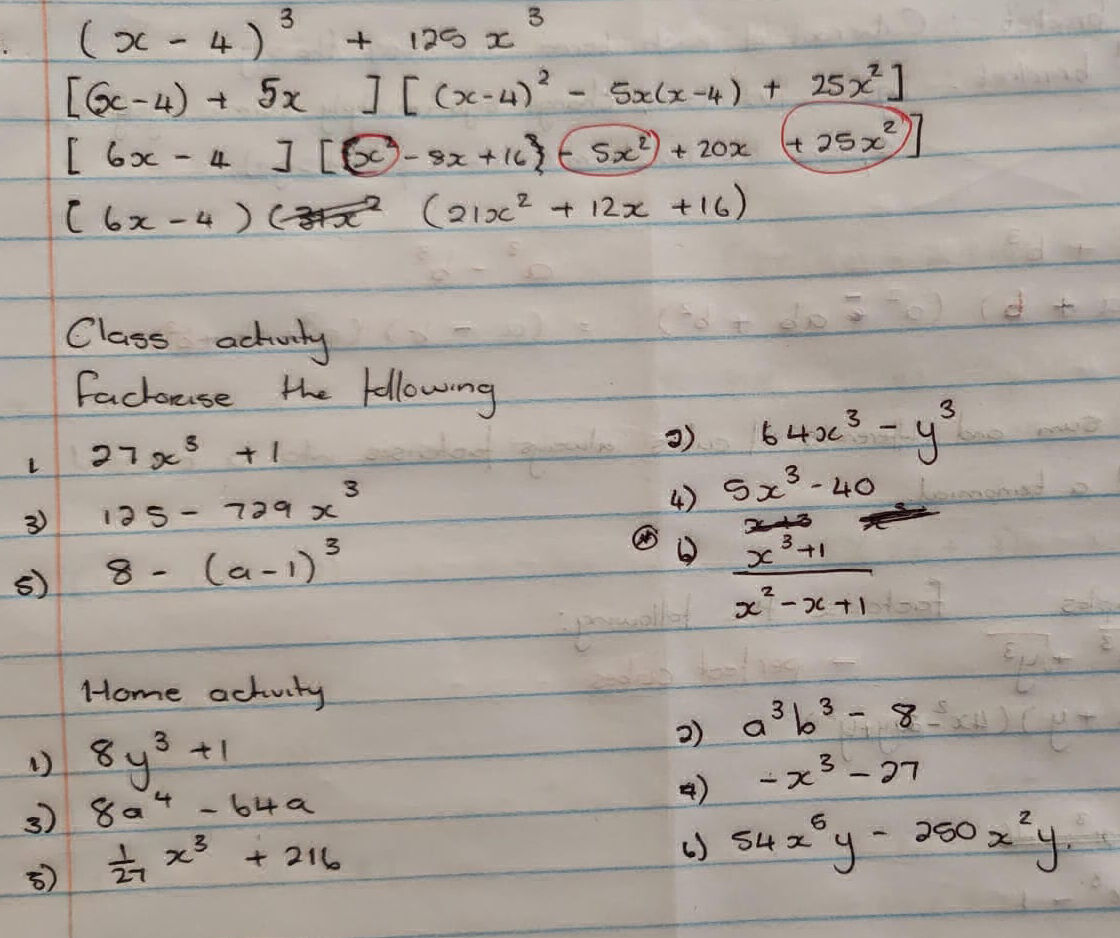 (x - 4)³ + 125x³
[(x-4) + 5x ] [ (x-4)² - 5x(x-4) + 25x² ]
[ 6x - 4 ] [ (x² - 8x + 16) - 5x² + 20x + 25x² ]
( 6x - 4 ) ( (21x² + 12x + 16)
Class activity
Factorise the following
1 27x³ + 1 2) 64x³ - y³
3) 125 - 729x³ 4) 5x³ - 40
5) 8 - (a - 1)³ 6) x³+1
x² - x + 1
Home activity
1) 8y³ + 1 2) a³b³ - 8
3) 8a⁴ - 64a 4) -x³ - 27
5) 1/27 x³ + 216 6) 54x⁵y - 250x²y.